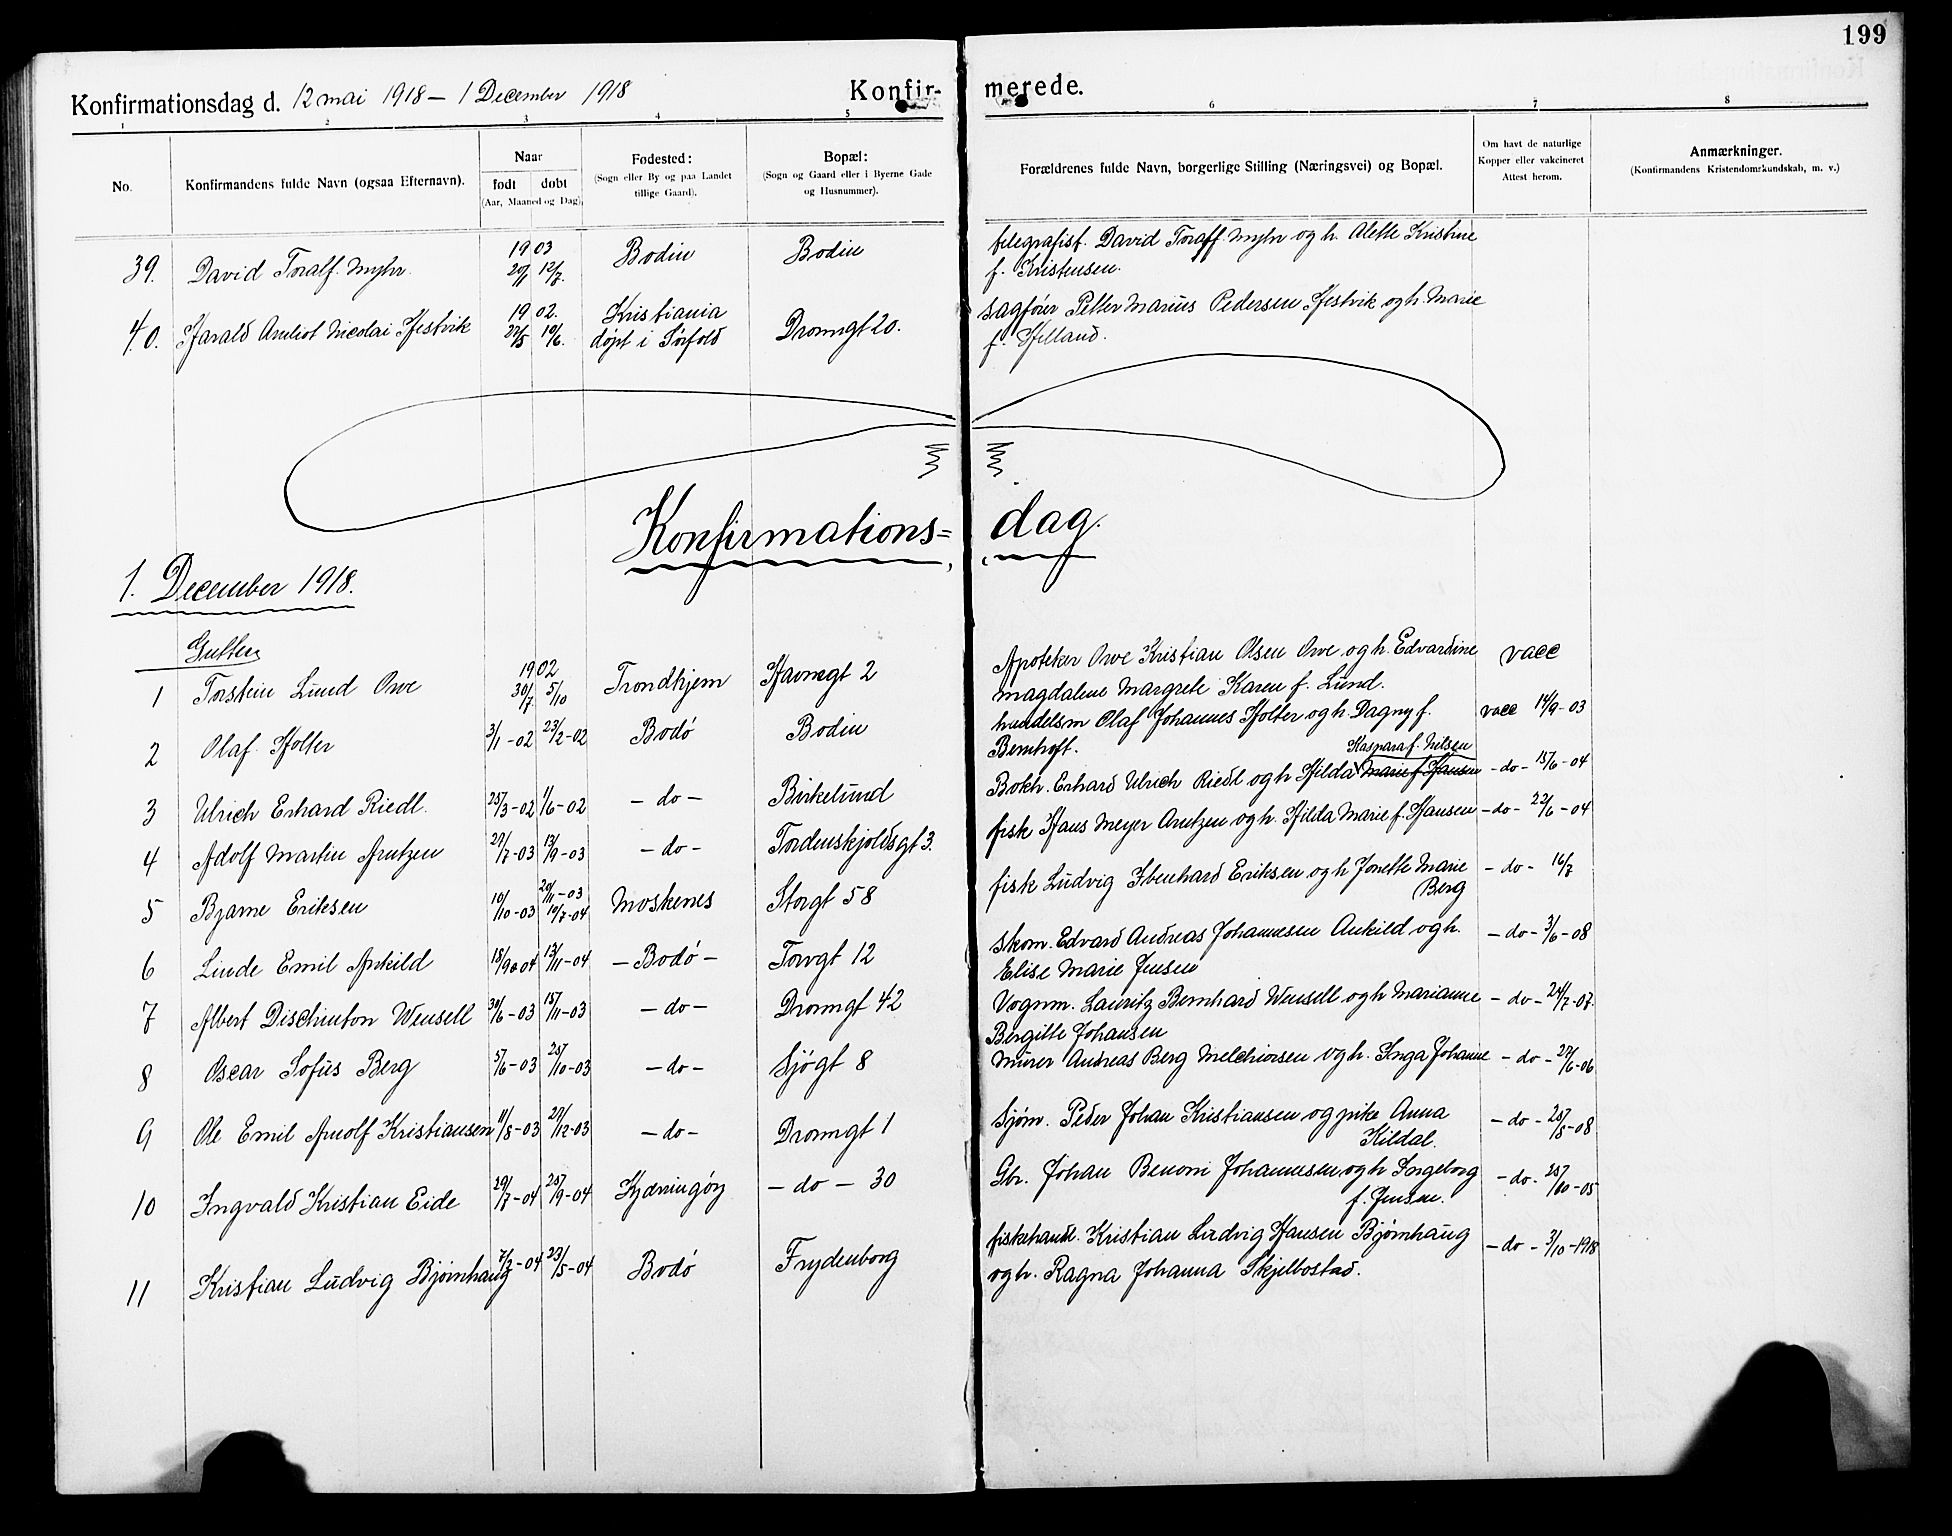 199
Konfirmationsdag d. 12 mai 1918 – 1 December 1918
Konfir- merede.
1 2 3 4 5 6 7 8
No.
Konfirmandens fulde Navn (ogsaa Efternavn).
Naar
født døbt
(Aar, Maaned og Dag).
Fødested:
(Sogn eller By og paa Landet
tillige Gaard).
Bopæl:
(Sogn og Gaard eller i Byerne Gade
og Husnummer).
Forældrenes fulde Navn, borgerlige Stilling (Næringsvei) og Bopæl.
Om havt de naturlige
Kopper eller vakcineret
Attest herom.
Anmærkninger.
(Konfirmandens Kristendomskundskab, m. v.)
39. David Toralf Myhr 1903 12/7. Bodin Bodin telegrafist. David Toralf Myhr og h. Alette Kristine
f. Kristensen.
40. Harald Amliot Nicolai Hestvik 1902. 27/5 10/6. Kristiania Dronngt 20. sagfører Petter Marius Pedersen Hestvik og h. Marie
døpt i Sørfold f. Helland.
Konfirmations= dag.
1. December 1918.
Gutter
1 Torstein Lund Owe 1902 30/7 5/10 Trondhjem Havnegt 2 Apoteker Owe Kristian Olsen Owe og h. Edvardine vacc
Magdalene Margrete Karen f. Lund.
2 Olaf Holter 3/1-02 23/2-02 Bodø Bodin handelsm Olaf Johannes Holter og h. Dagny f. vacc 14/9-03
Bernhoft.
Kaspara f. Nilsen
3 Ulrich Erhard Riedl. 25/3-02 1/6-02 – do – Birkelund Bokh. Erhard Ulrich Riedl og h Hilda Marie f. Hansen – do – 15/6-04
4 Adolf Martin Arntzen 27/7-03 13/9-03 – do – Tordenskjoldsgt 3. fisk Hans Meyer Arntzen og h. Hilda Marie f. Hansen – do – 22/6-04
5 Bjarne Eriksen 10/10-03 20/11-03 Moskenes Storgt 58 fisk Ludvig Ibenhard Eriksen og h Jonette Marie – do – 16/7
10/7-04 Berg
6 Linde Emil Ankild 18/9-04 13/11-04 – Bodø – Torvgt 12 Skom. Edvard Andreas Johannesen Ankild og h. – do – 3/6-08
Elise Marie Jensen
7 Albert Dischinton Wensell 30/6-03 15/11-03 – do – Dronngt 42 Vognm. Lauritz Bernhard Wensell og h Marianne – do – 24/7-07.
Bergitte Johansen
8 Oscar Sofus Berg 5/6-03 25/10-03 – do – Sjøgt 8 Murer Andreas Berg Melchiorsen og h. Inga Johanne – do – 27/6-06
9 Ole Emil Arnolf Kristiansen 11/8-03 27/12-03 – do – Dronngt 1 Sjøm. Peder Johan Kristiansen og pike Anna – do – 25/5-08
Kildal.
10 Ingvald Kristian Eide 29/7-04 25/9-04 Kjærringøy – do – 30 Gbr. Johan Benoni Johannesen og h Ingeborg – do – 25/10-05
f. Jensen.
11 Kristian Ludvig Bjørnhaug 7/2-04 23/5-04 Bodø Frydenborg fiskehandl. Kristian Ludvig Hansen Bjørnhaug – do – 3/10-1918
og h. Ragna Johanna Skjelbostad.